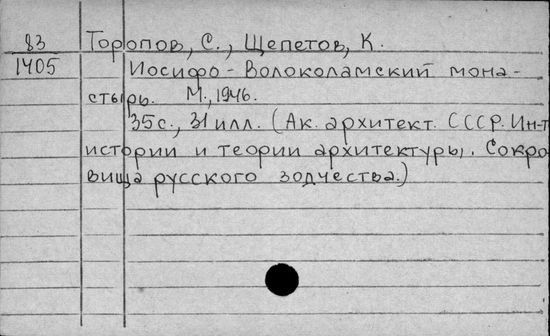 83 Торопов, С., Щепетов, К.
1405 Иосифо-Волоколамский мона-
стырь. М., 1946.
35 с., 31 илл. (Ак. архитект. СССР. Ин-т
истории и теории архитектуры. Сокро
вища русского зодчества.)